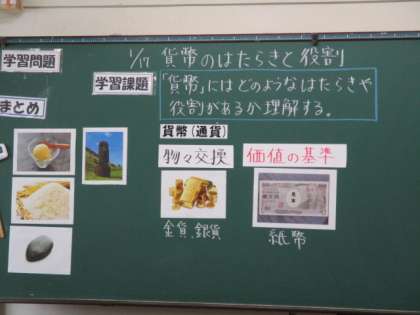 学習問題
1/17 貨幣のはたらきと役割
学習課題
「貨幣」にはどのようなはたらきや
役割があるか理解する。
まとめ
貨幣(通貨)
物々交換
価値の基準
金貨、銀貨
紙幣